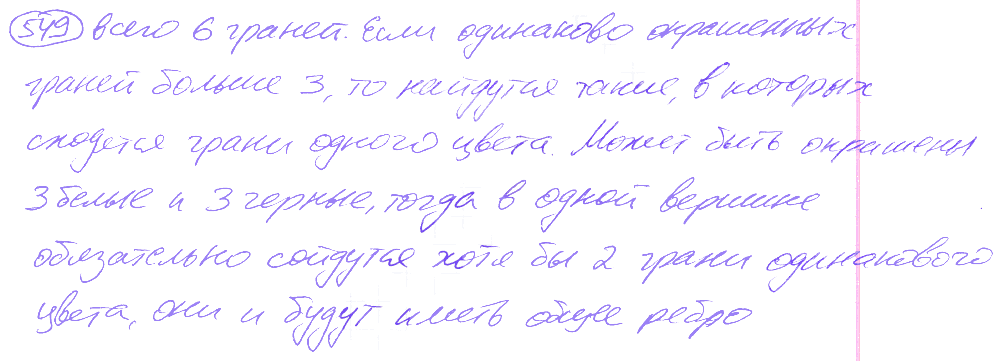 549 всего 6 граней. Если одинаково окрашенных
граней больше 3, то найдутся такие, в которых
сходятся грани одного цвета. Может быть окрашены
3 белые и 3 черные, тогда в одной вершине
обязательно сойдутся хотя бы 2 грани одинакового
цвета, они и будут иметь общее ребро